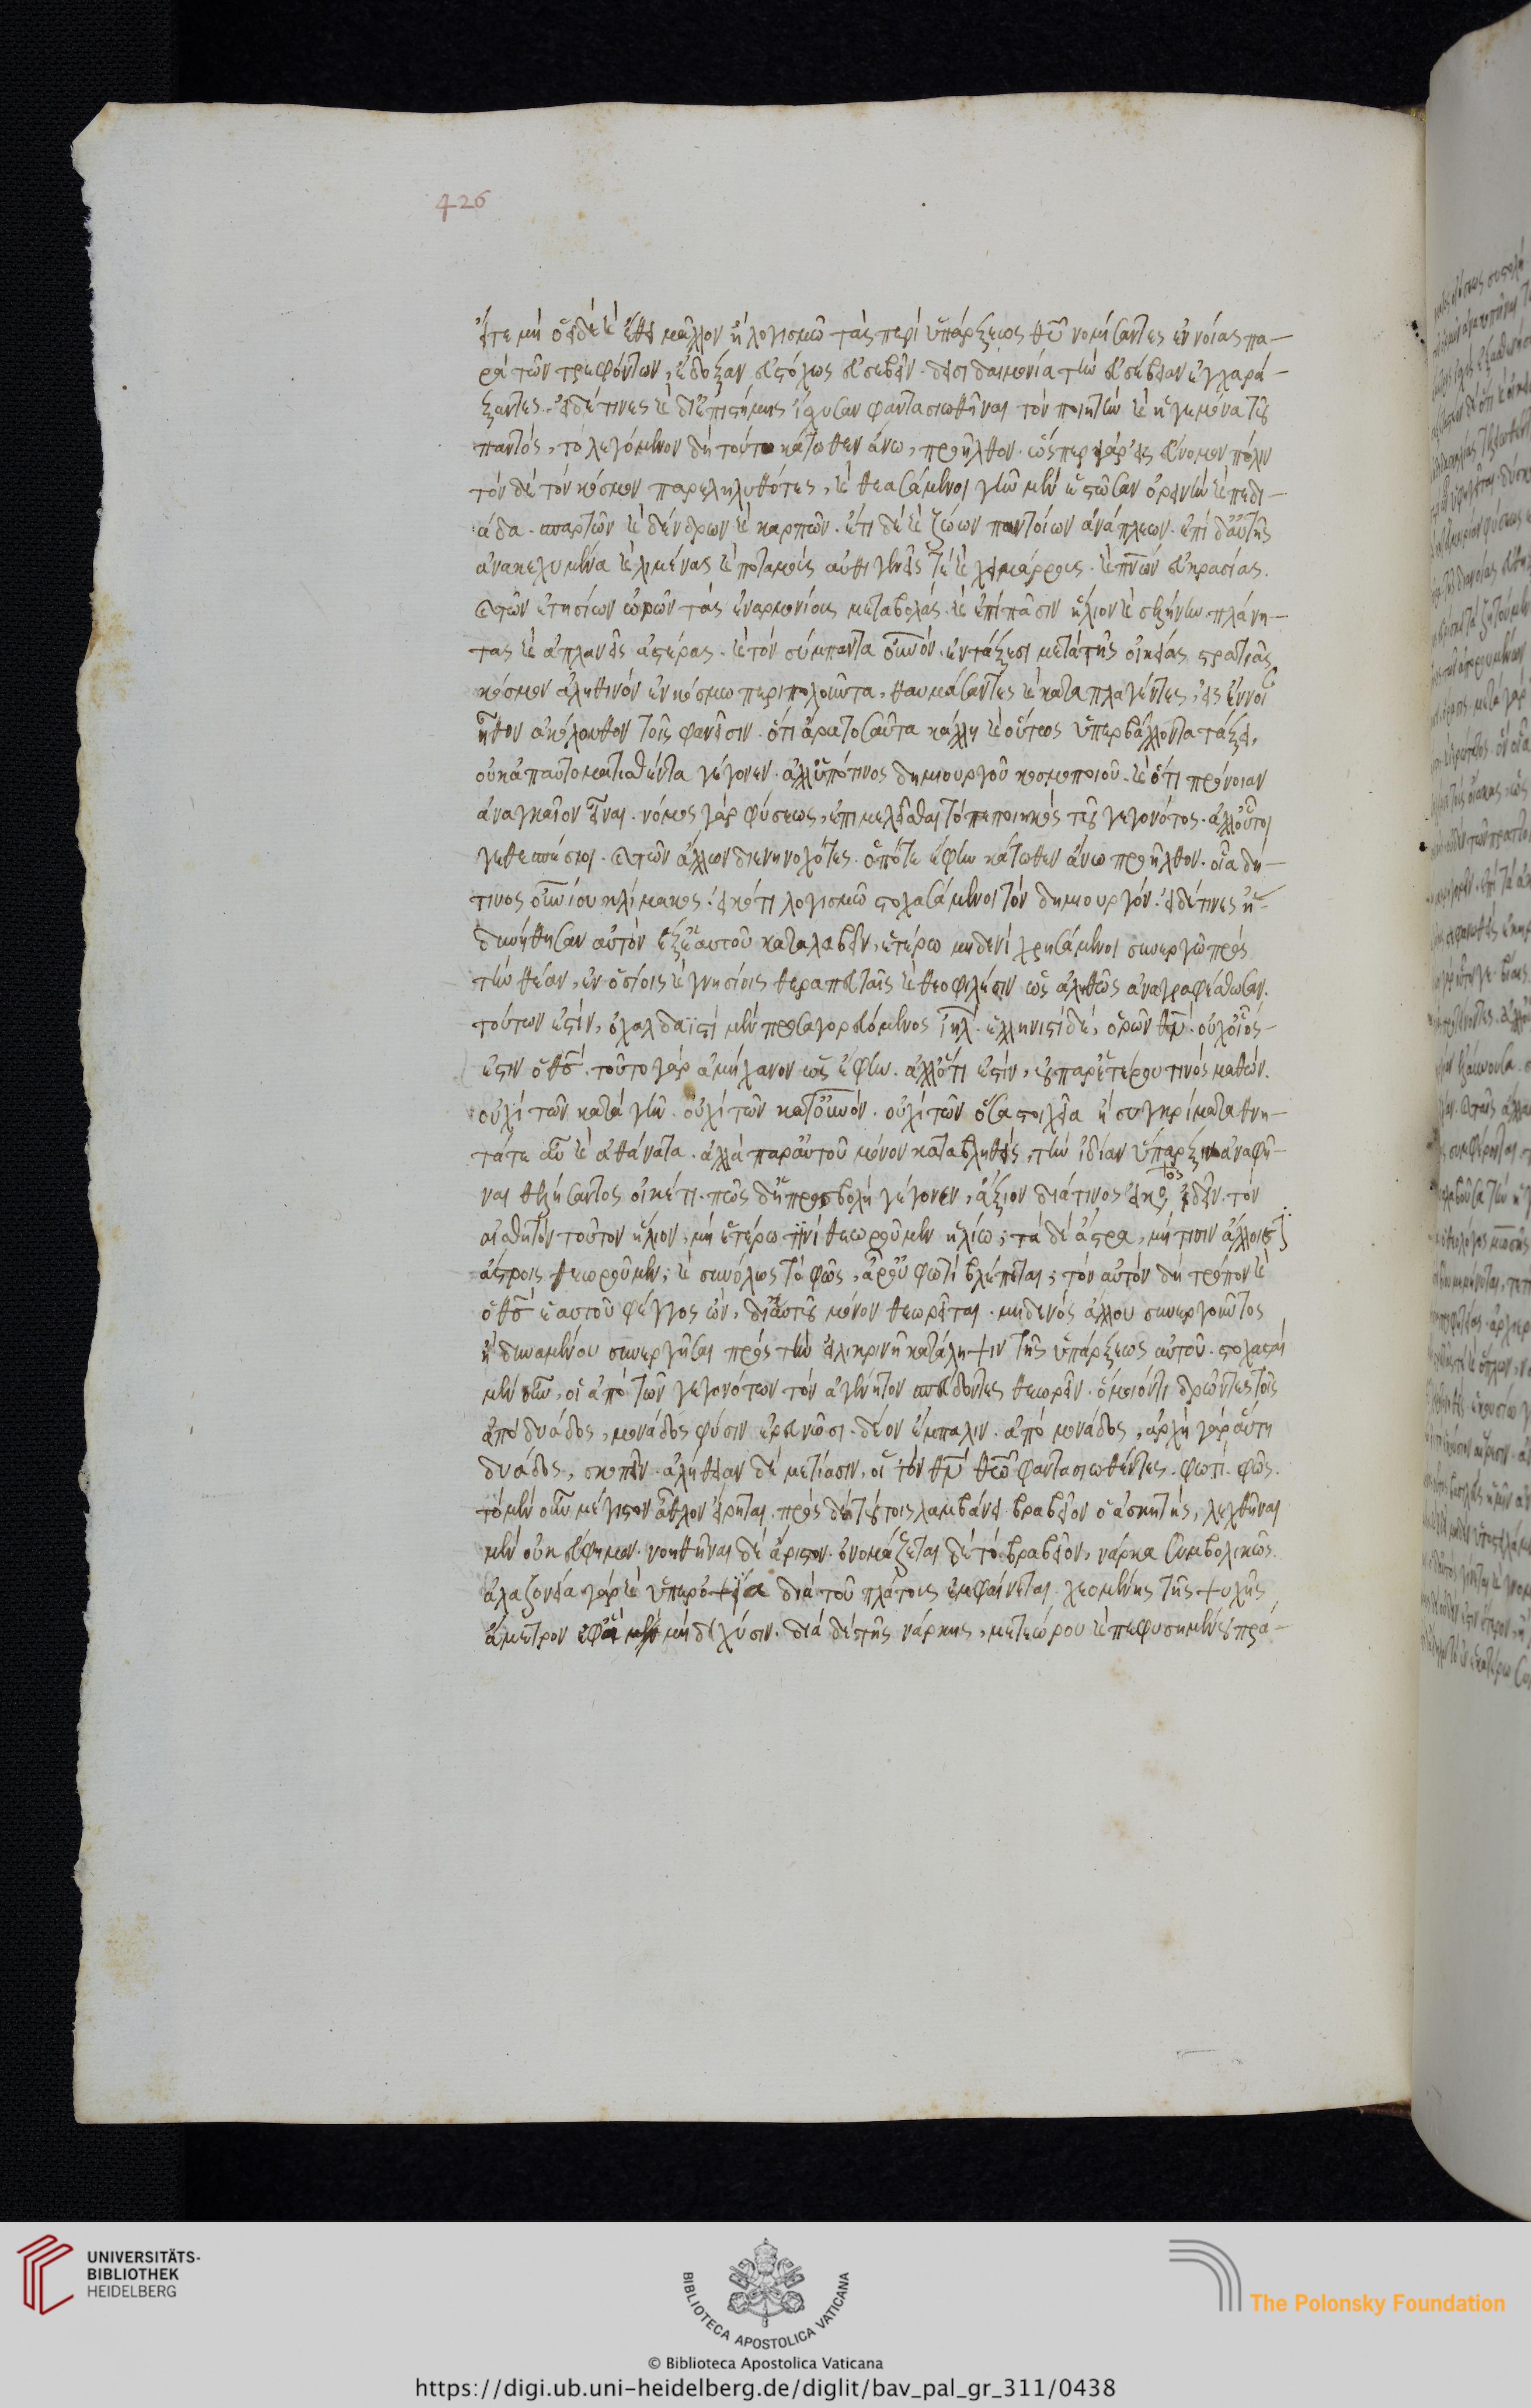 426
εἴτε μὴ ὅσα δὲ καὶ ἔθει μᾶλλον ἢ λογισμῶ τὰς περὶ ὑπάρξεως θ͞υ νομίσαντες ἐννοίας πα-
ρὰ τῶν τρεφόντων, ἔδοξαν εὐστόχως εὐσεβεῖν. δεισιδαιμονία τὴν εὐσέβειαν ἐγχαρά-
ξαντες. εἰ δέ τινες καὶ δι' ἐπιστήμης ἴσχυσαν φαντασιωθῆναι τὸν ποιητὴν καὶ ἡγεμόνα τοῦ
παντὸς, τὸ λεγόμενον δὴ τοῦτο κάτωθεν ἄνω, προῆλθον. ὥσπερ γὰρ εἰς εὔνομον πόλιν
τὸν δὲ τὸν κόσμον παρεληλυθότες, καὶ θεασάμενοι γῆν μὲν ἑστῶσαν ὀρεινὴν καὶ πεδι-
άδα. σπαρτῶν καὶ δένδρων καὶ καρπῶν. ἔτι δὲ καὶ ζώων παντοίων ἀνάπλεων. ἐπὶ δ' αὐτῆς
ἀνακεχυμένα καὶ λιμένας καὶ ποταμοὺς αὐθιγενεῖς τὲ καὶ χειμάρρους. καὶ πν͞ων εὐκρασίας.
καὶ τῶν ἐτησίων ὡρῶν τὰς ἐναρμονίους μεταβολάς. καὶ ἐπὶ πᾶσιν ἥλιον καὶ σελήνην πλάνη-
τας καὶ ἀπλανεῖς ἀστέρας. καὶ τὸν σύμπαντα οὐν͞ον. ἐν τάξεσι μετὰ τῆς οἰκείας στρατιᾶς
κόσμον ἀληθινὸν ἐν κόσμω περιπολοῦντα, θαυμάσαντες καὶ καταπλαγέντες, εἰς ἔννοι
ἦλθον ἀκόλουθον τοῖς φανεῖσιν. ὅτι ἄρα τοσαῦτα κάλλη καὶ οὕτως ὑπερβάλλοντα τάξει,
οὐκ ἀπαυτοματισθέντα γέγονεν. ἀλλ' ὑπό τινος δημιουργοῦ κοσμοποιοῦ. καὶ ὅτι πρόνοιαν
ἀναγκαῖον εἶναι. νόμος γὰρ φύσεως, ἐπιμελεῖσθαι τὸ πεποιηκὸς τοῦ γεγονότος. ἀλλ' οὗτοι
γε θεσπέσιοι. καὶ τῶν ἄλλων διενηνοχότες. ὁπότε ἔφην κάτωθεν ἄνω προῆλθον. οἷα δή-
τινος οὐν͞ίου κλίμακος. εἰκότι λογισμῶ στοχασάμενοι τὸν δημιουργόν. εἰ δέ τινες ἠ-
δυνήθησαν αὐτὸν ἐξ ἑαυτοῦ καταλαβεῖν, ἑτέρω μηδενὶ χρησάμενοι συνεργῶ πρὸς
τὴν θέαν, ἐν ὁσίοις καὶ γνησίοις θεραπευταῖς καὶ θεοφιλέσιν ὡς ἀληθῶς ἀναγραφέσθωσαν.
τούτων ἐστὶν, ὁ χαλδαϊστὶ μὲν προσαγορευόμενος ἰη͞λ. ἑλληνιστὶ δὲ, ὁρῶν θ͞ν. οὐχ οἷός-
ἐστιν ὁ θ͞ς. τοῦτο γὰρ ἀμήχανον ὡς ἔφην. ἀλλ' ὅτι ἐστὶν, οὐ παρ' ἑτέρου τινὸς μαθών.
οὐχὶ τῶν κατὰ γῆν. οὐχὶ τῶν κατ' οὐν͞ον. οὐχὶ τῶν ὅσα στοιχεῖα ἢ συγκρίματα θνη-
τά τε αὖ καὶ ἀθάνατα. ἀλλὰ παρ' αὐτοῦ μόνον κατακληθεὶς, τὴν ἰδίαν ὕπαρξιν ἀναφῆ-
ναι θελήσαντος οἰκέτι. πῶς δ' ἡ προσβολὴ γέγονεν, ἄξιον διά τινος εἰκόνος ἰδεῖν. τὸν
αἰσθητὸν τοῦτον ἥλιον, μὴ ἑτέρω τινὶ θεωροῦμεν ἡλίω; τὰ δὲ ἄστρα, μή τισιν ἄλλοις
ἄστροις θεωροῦμεν; καὶ συνόλως τὸ φῶς, ἆρ' οὐ φωτὶ βλέπεται; τὸν αὐτὸν δὴ τρόπον καὶ
ὁ θ͞ς ἑαυτοῦ φέγγος ὢν, δι' αὐτοῦ μόνον θεωρεῖται. μηδενὸς ἄλλου συνεργοῦντος
ἢ δυναμένου συνεργῆσαι πρὸς τὴν εἰλικρινῆ κατάληψιν τῆς ὑπάρξεως αὐτοῦ. στοχασταὶ
μὲν οὖν, οἱ ἀπὸ τῶν γεγονότων τὸν ἀγένητον σπεύδοντες θεωρεῖν. ὅμοιόν τι δρῶντες τοῖς
ἀπὸ δυάδος, μονάδος φύσιν ἐρευνῶσι. δέον ἔμπαλιν. ἀπὸ μονάδος, ἀρχὴ γὰρ αὕτη
δυάδος, σκοπεῖν. ἀλήθειαν δὲ μετίασιν, οἱ τὸν θ͞ν θ͞ω φαντασιωθέντες. φωτὶ φῶς.
τὸ μὲν οὖν μέγιστον ἆθλον εἴρηται. πρὸς δὲ τούτοις λαμβάνει βραβεῖον ὁ ἀσκητὴς, λεχθῆναι
μὲν οὐκ εὔφημον. νοηθῆναι δὲ ἄριστον. ὀνομάζεται δὲ τὸ βραβεῖον, νάρκα συμβολικῶς.
ἀλαζονεία γὰρ καὶ ὑπεροψία διὰ τοῦ πλάτους ἐμφαίνεται. χεομένης τῆς ψυχῆς
ἄμετρον ἐφ' ἃ μὴ δεῖ χύσιν. διὰ δὲ τῆς νάρκης, μετεώρου καὶ πεφυσημένου πρά-
UNIVERSITÄTS-
BIBLIOTHEK
HEIDELBERG
BIBLIOTECA APOSTOLICA VATICANA
The Polonsky Foundation
© Biblioteca Apostolica Vaticana
https://digi.ub.uni-heidelberg.de/diglit/bav_pal_gr_311/0438